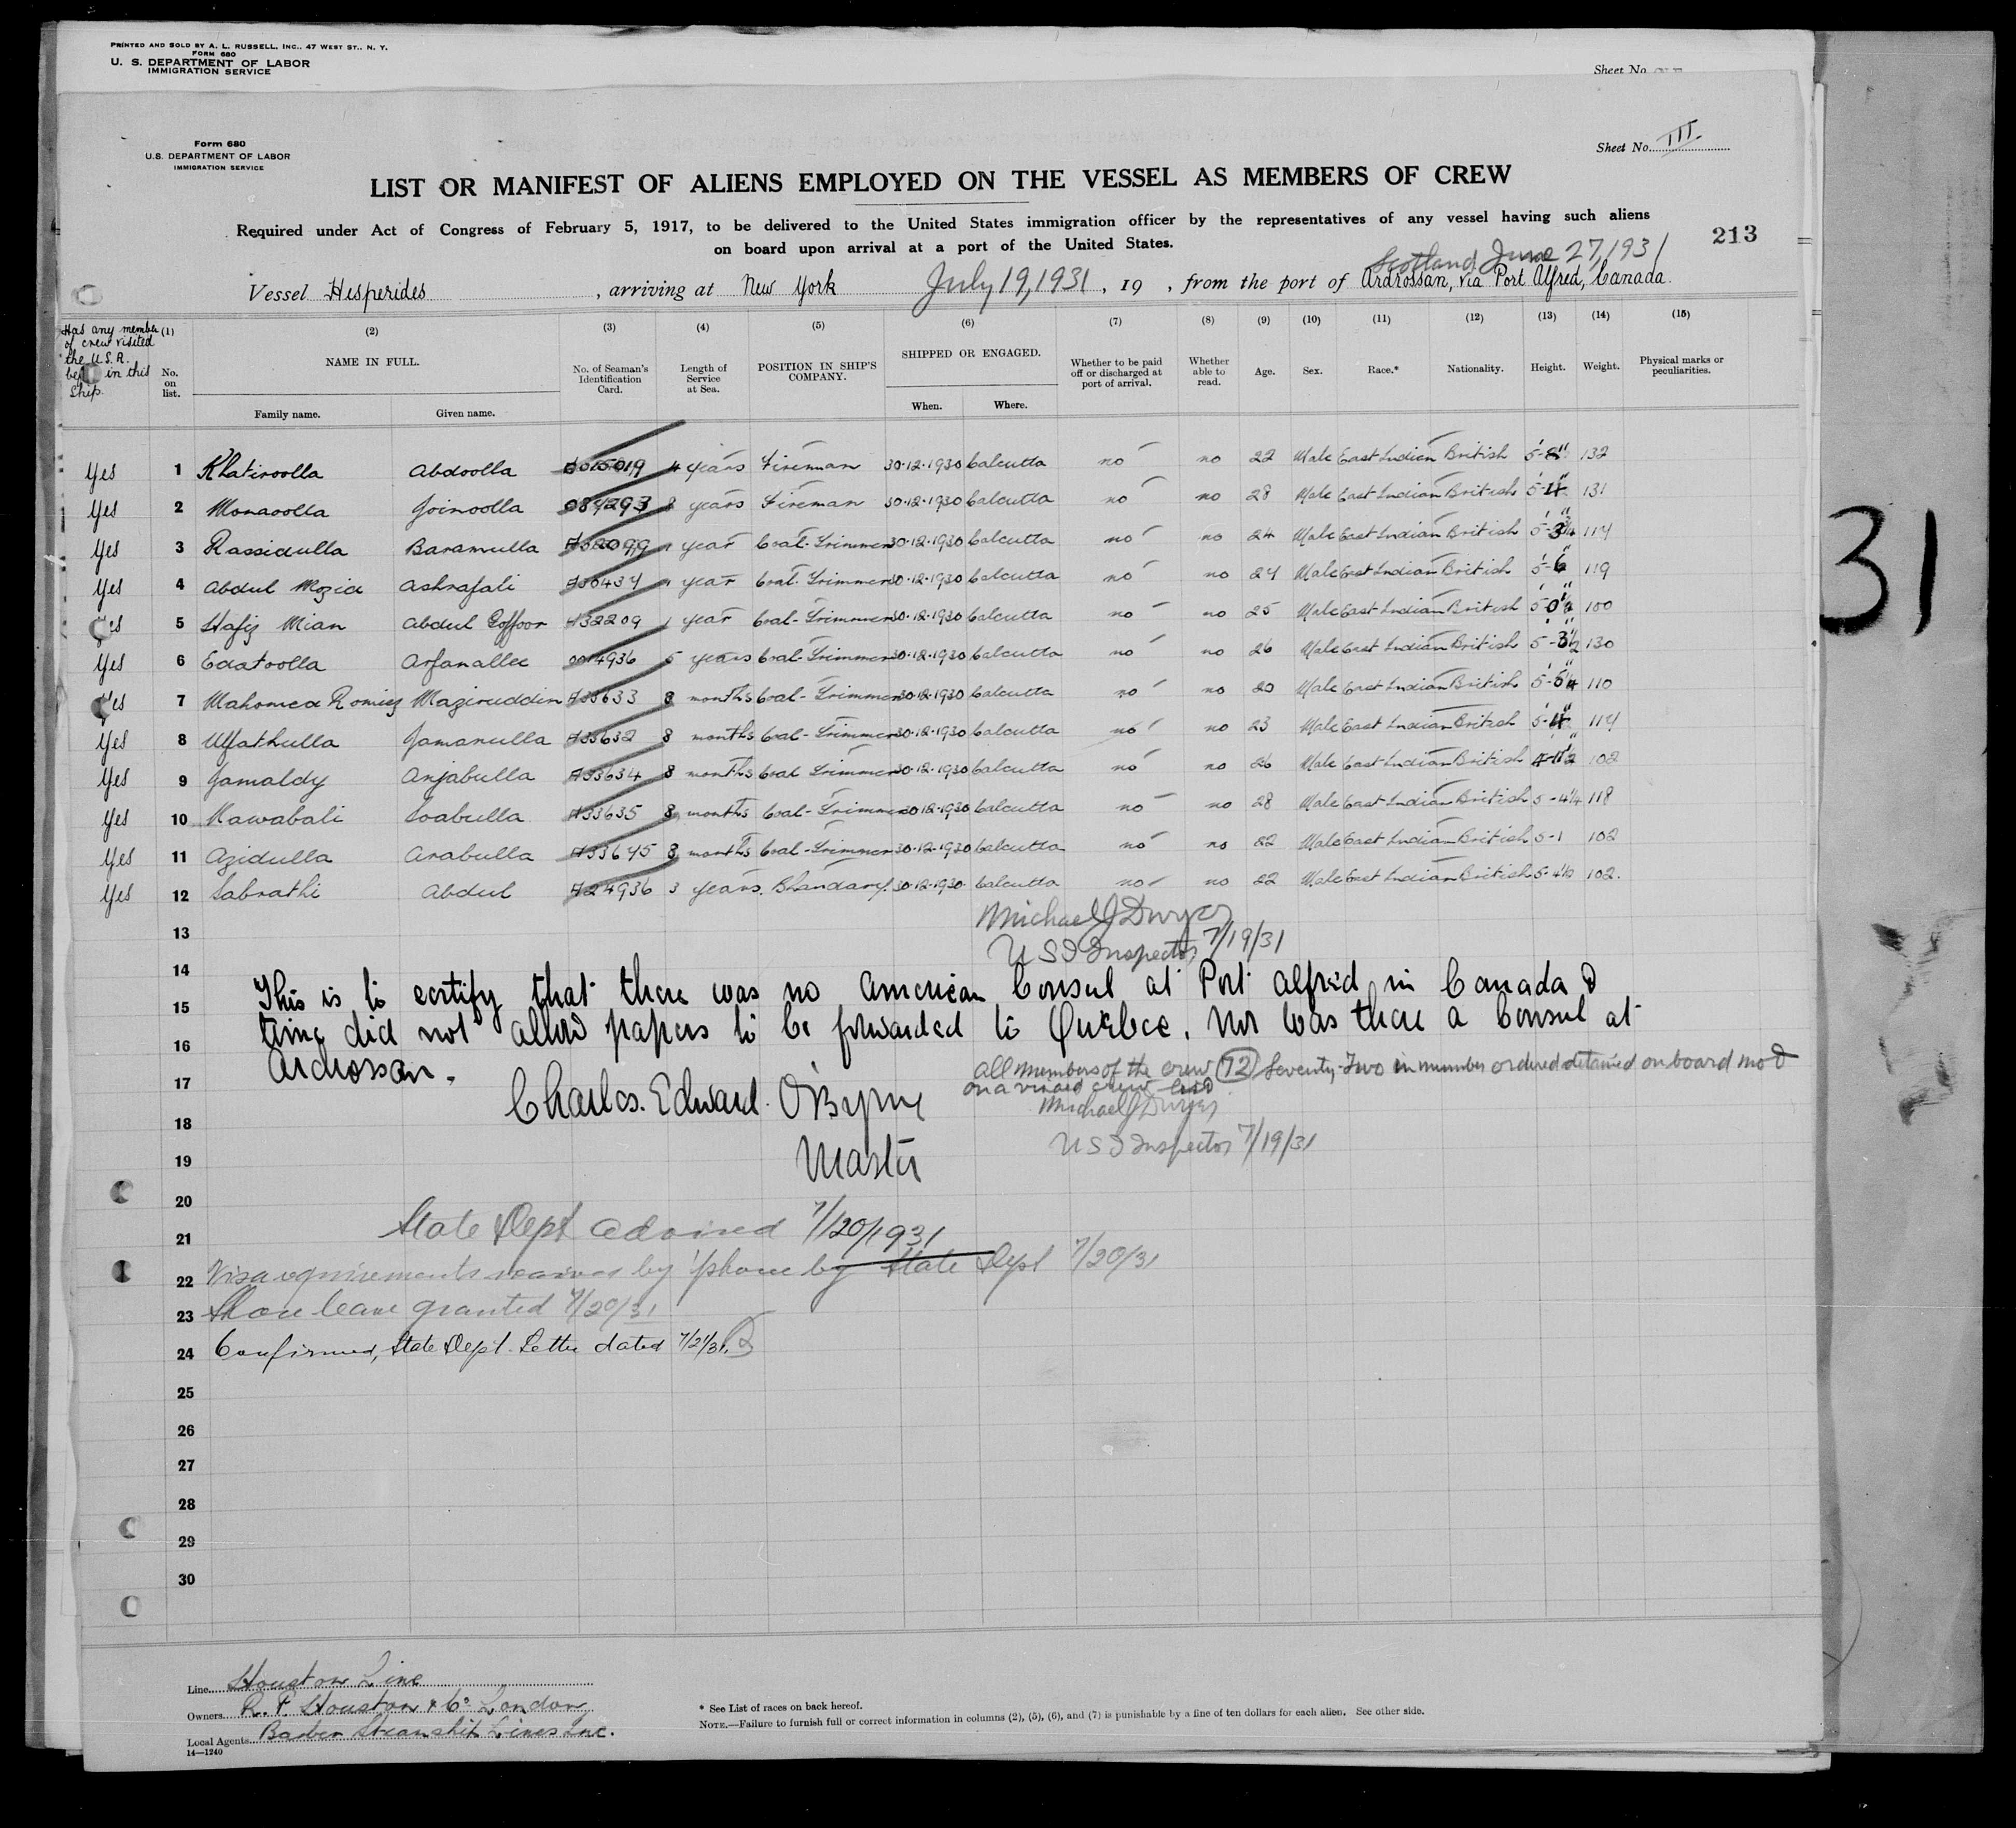 PRINTED AND SOLD BY A. L. RUSSELL, INC., 47 WEST ST., N. Y.
FORM 680
U. S. DEPARTMENT OF LABOR
IMMIGRATION SERVICE
Sheet No.
Form 680
U.S. DEPARTMENT OF LABOR
IMMIGRATION SERVICE
Sheet No. III.
LIST OR MANIFEST OF ALIENS EMPLOYED ON THE VESSEL AS MEMBERS OF CREW
Required under Act of Congress of February 5, 1917, to be delivered to the United States immigration officer by the representatives of any vessel having such aliens
on board upon arrival at a port of the United States.
213
Scotland June 27, 1931
Vessel Hesperides, arriving at New York July 19, 1931, 19 , from the port of Ardrossan, via Port Alfred, Canada.
31
Has any member of crew visited the U.S.A. in this Ship.
(1) No. on list.
(2) NAME IN FULL. Family name. Given name.
(3) No. of Seaman's Identification Card.
(4) Length of Service at Sea.
(5) POSITION IN SHIP'S COMPANY.
(6) SHIPPED OR ENGAGED. When. Where.
(7) Whether to be paid off or discharged at port of arrival.
(8) Whether able to read.
(9) Age.
(10) Sex.
(11) Race.*
(12) Nationality.
(13) Height.
(14) Weight.
(15) Physical marks or peculiarities.
Yes 1 Khatiroolla Abdoolla 4 years Fireman 30.12.1930 Calcutta no no 22 Male East Indian British 5-8" 132
Yes 2 Monaoolla Joinoolla 084293 8 years Fireman 30.12.1930 Calcutta no no 28 Male East Indian British 5-4" 131
Yes 3 Rassidulla Baramulla 1 year Coal-Trimmer 30.12.1930 Calcutta no no 24 Male East Indian British 5-3¾ 114
Yes 4 Abdul Mozid Ashrafali A30434 1 year Coal-Trimmer 30.12.1930 Calcutta no no 24 Male East Indian British 5-6" 119
Yes 5 Hafiz Mian Abdul Goffoor A32209 1 year Coal-Trimmer 30.12.1930 Calcutta no no 25 Male East Indian British 5-0½ 100
Yes 6 Edatoolla Arfanallee 0014936 5 years Coal-Trimmer 30.12.1930 Calcutta no no 26 Male East Indian British 5-3½ 130
Yes 7 Mahomed Romiz Maziruddin A33633 8 months Coal-Trimmer 30.12.1930 Calcutta no no 20 Male East Indian British 110
Yes 8 Ulfathulla Jamanulla A33632 8 months Coal-Trimmer 30.12.1930 Calcutta no no 23 Male East Indian British 5-4" 114
Yes 9 Jamaldy Anjabulla A33634 8 months Coal Trimmer 30.12.1930 Calcutta no no 26 Male East Indian British 4-11½ 102
Yes 10 Nawabali Soabulla A33635 8 months Coal-Trimmer 30.12.1930 Calcutta no no 28 Male East Indian British 5-4¼ 118
Yes 11 Azidulla Arabulla A33645 8 months Coal-Trimmer 30.12.1930 Calcutta no no 22 Male East Indian British 5-1 102
Yes 12 Sabrathi Abdul A24936 3 years. Bhandary. 30.12.1930. Calcutta no no 22 Male East Indian British 5-4½ 102.
13 Michael J Dwyer
14 U S I Inspector 7/19/31
15 This is to certify that there was no American Consul at Port Alfred in Canada &
16 time did not allow papers to be forwarded to Quebec. Nor was there a Consul at
17 Ardrossan.
All members of the crew (72) Seventy-Two in number ordered detained on board
on a visaed crew list
18 Charles. Edward. O'Byrne
Michael J Dwyer
19 Master
U S I Inspector 7/19/31
20
21 State Dept advised 7/20/1931
22 Visa requirements waived by 'phone by State Dept 7/20/31
23 Shore leave granted 7/20/31
24 Confirmed, State Dept. Letter dated 7/21/31.
25
26
27
28
29
30
Line Houston Line
Owners R. P. Houston & Co London
Local Agents Barber Steamship Lines Inc.
14—1240
* See List of races on back hereof.
NOTE.—Failure to furnish full or correct information in columns (2), (5), (6), and (7) is punishable by a fine of ten dollars for each alien. See other side.